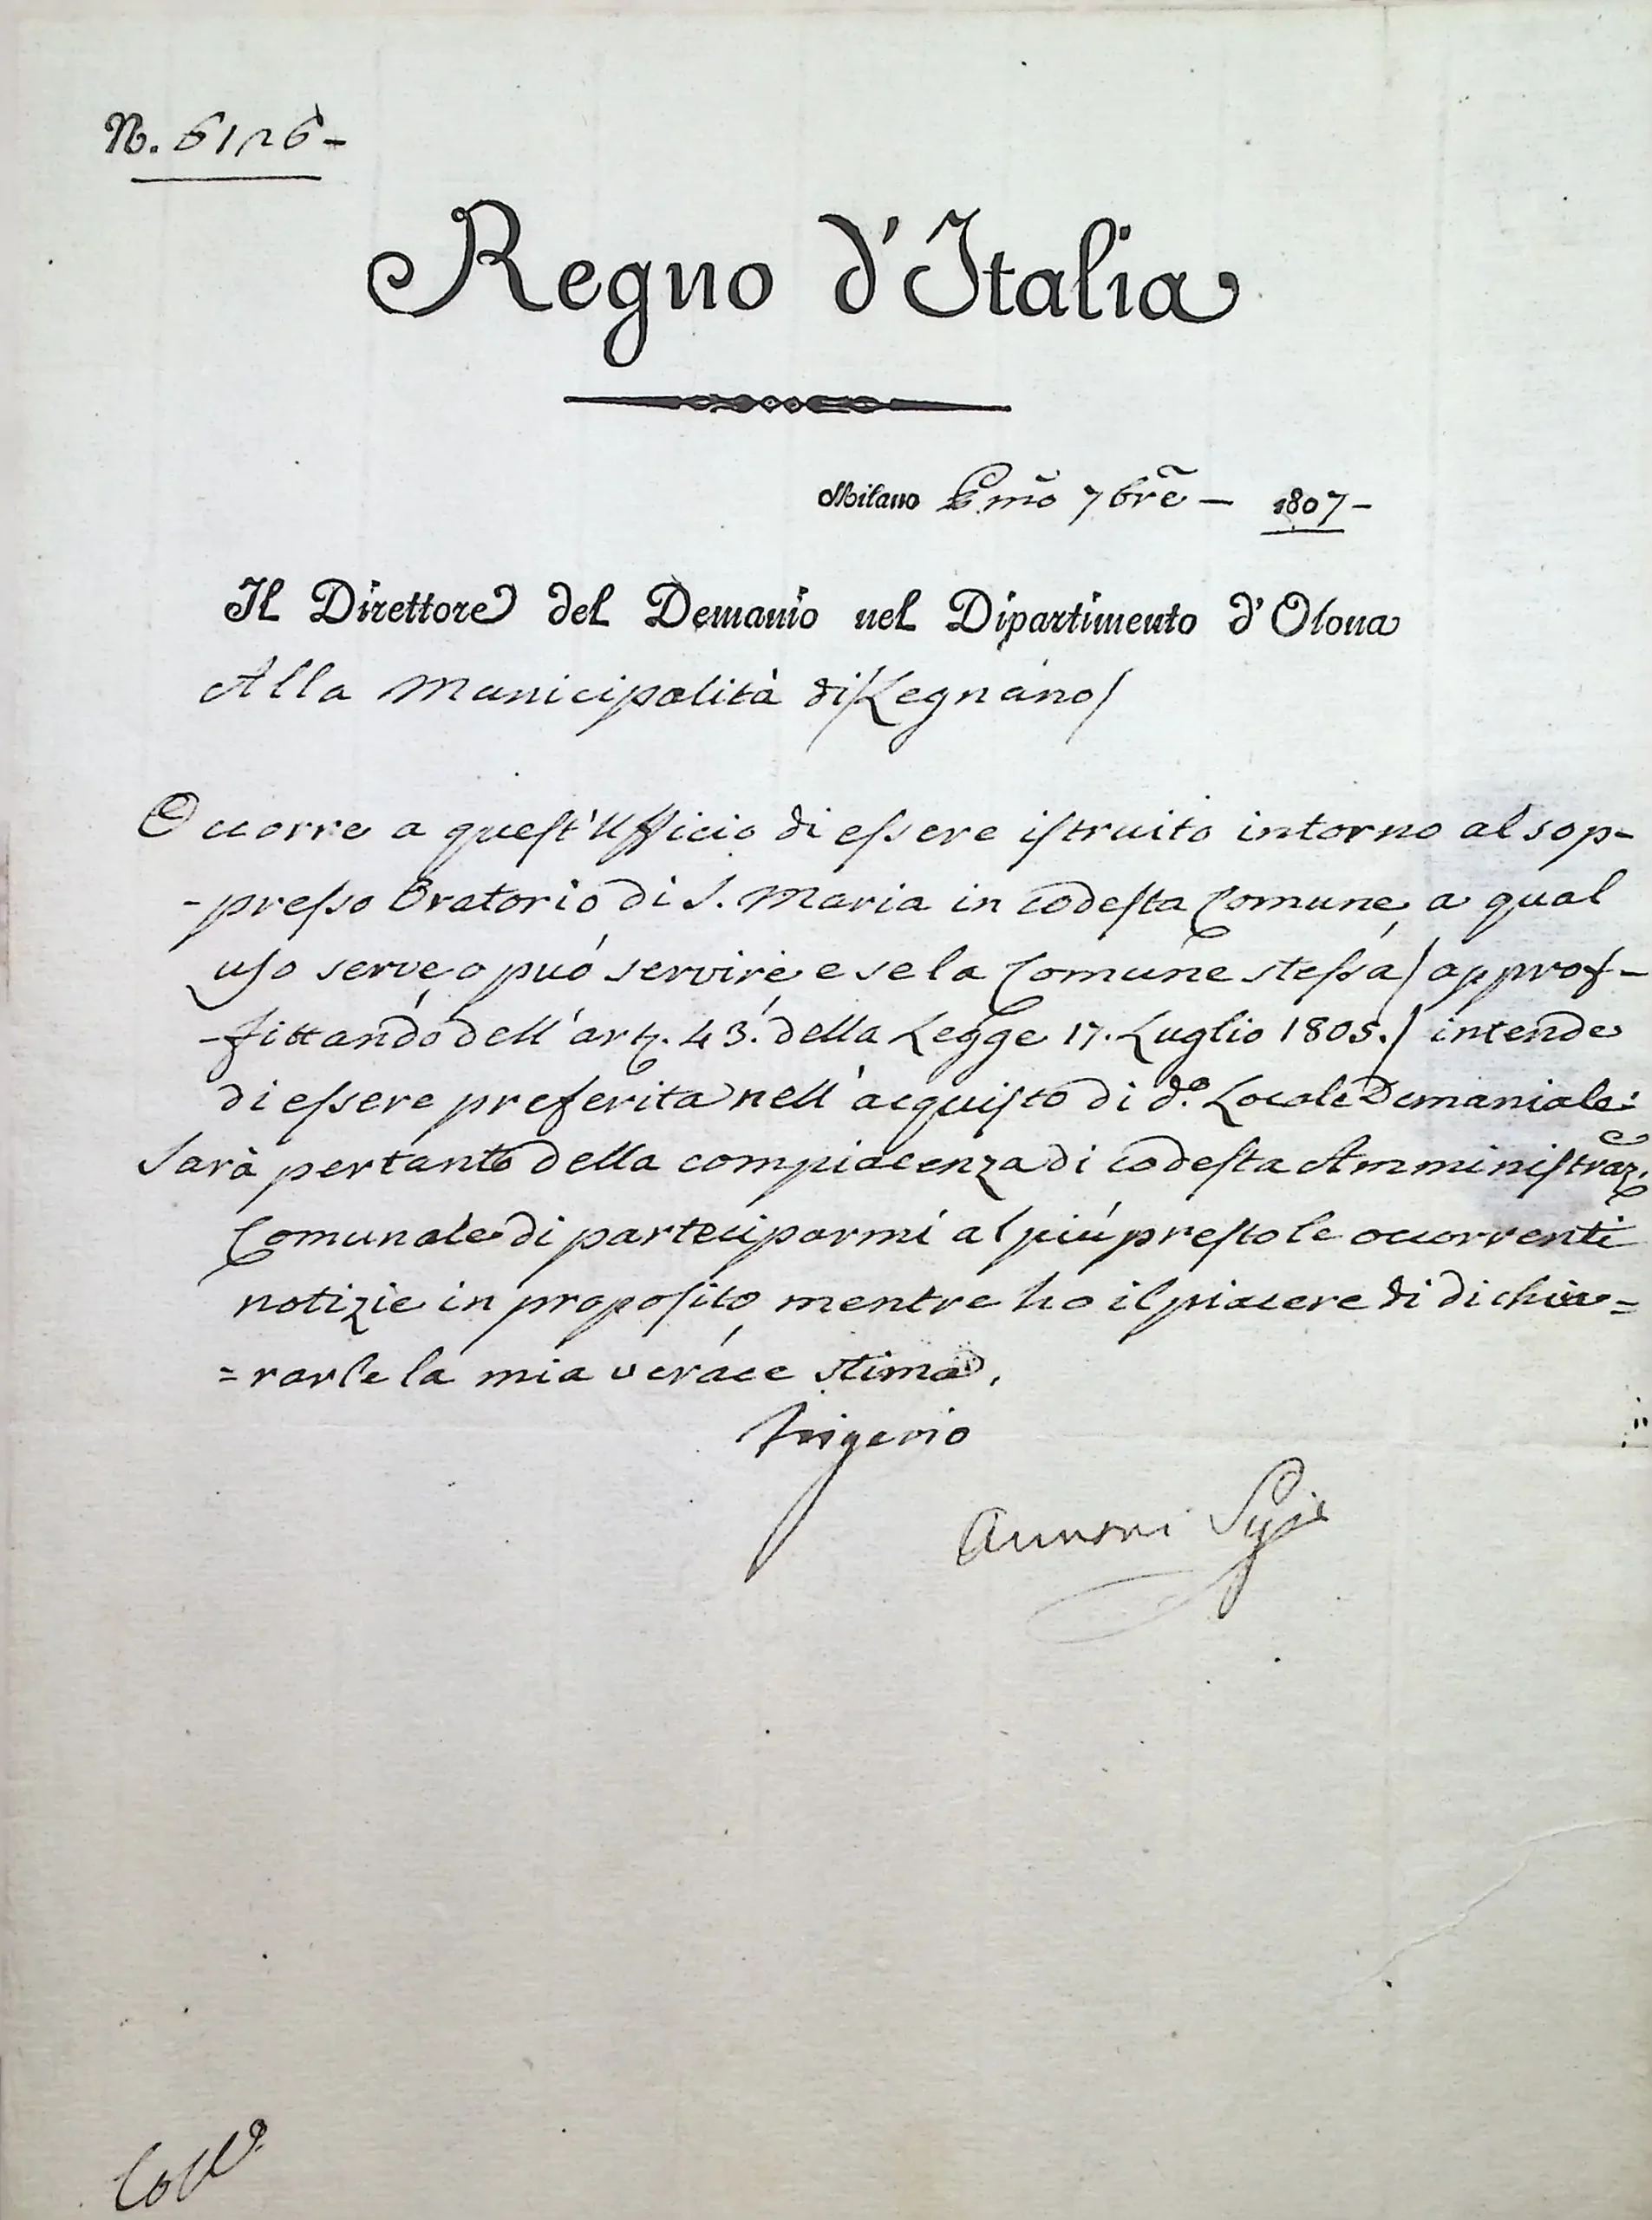 N. 6126 -
Regno d'Italia
Milano Pmõ 7brẽ - 1807 -
Il Direttore del Demanio nel Dipartimento d'Olona
Alla Municipalità di Legnano
Occorre a quest'Ufficio di essere istruito intorno al sop-
-presso Oratorio di S. Maria in codesta Comune, a qual
uso serve, o può servire, e se la Comune stessa / approf-
-fittando dell'art. 43. della Legge 17. Luglio 1805. / intende
di essere preferita nell'acquisto di d.º Locale Demaniale:
Sarà pertanto della compiacenza di codesta Amministraz.e
Comunale di parteciparmi al più presto le occorrenti
notizie in proposito, mentre ho il piacere di dichia=
=rarle la mia verace stima.
Frigerio
Annoni